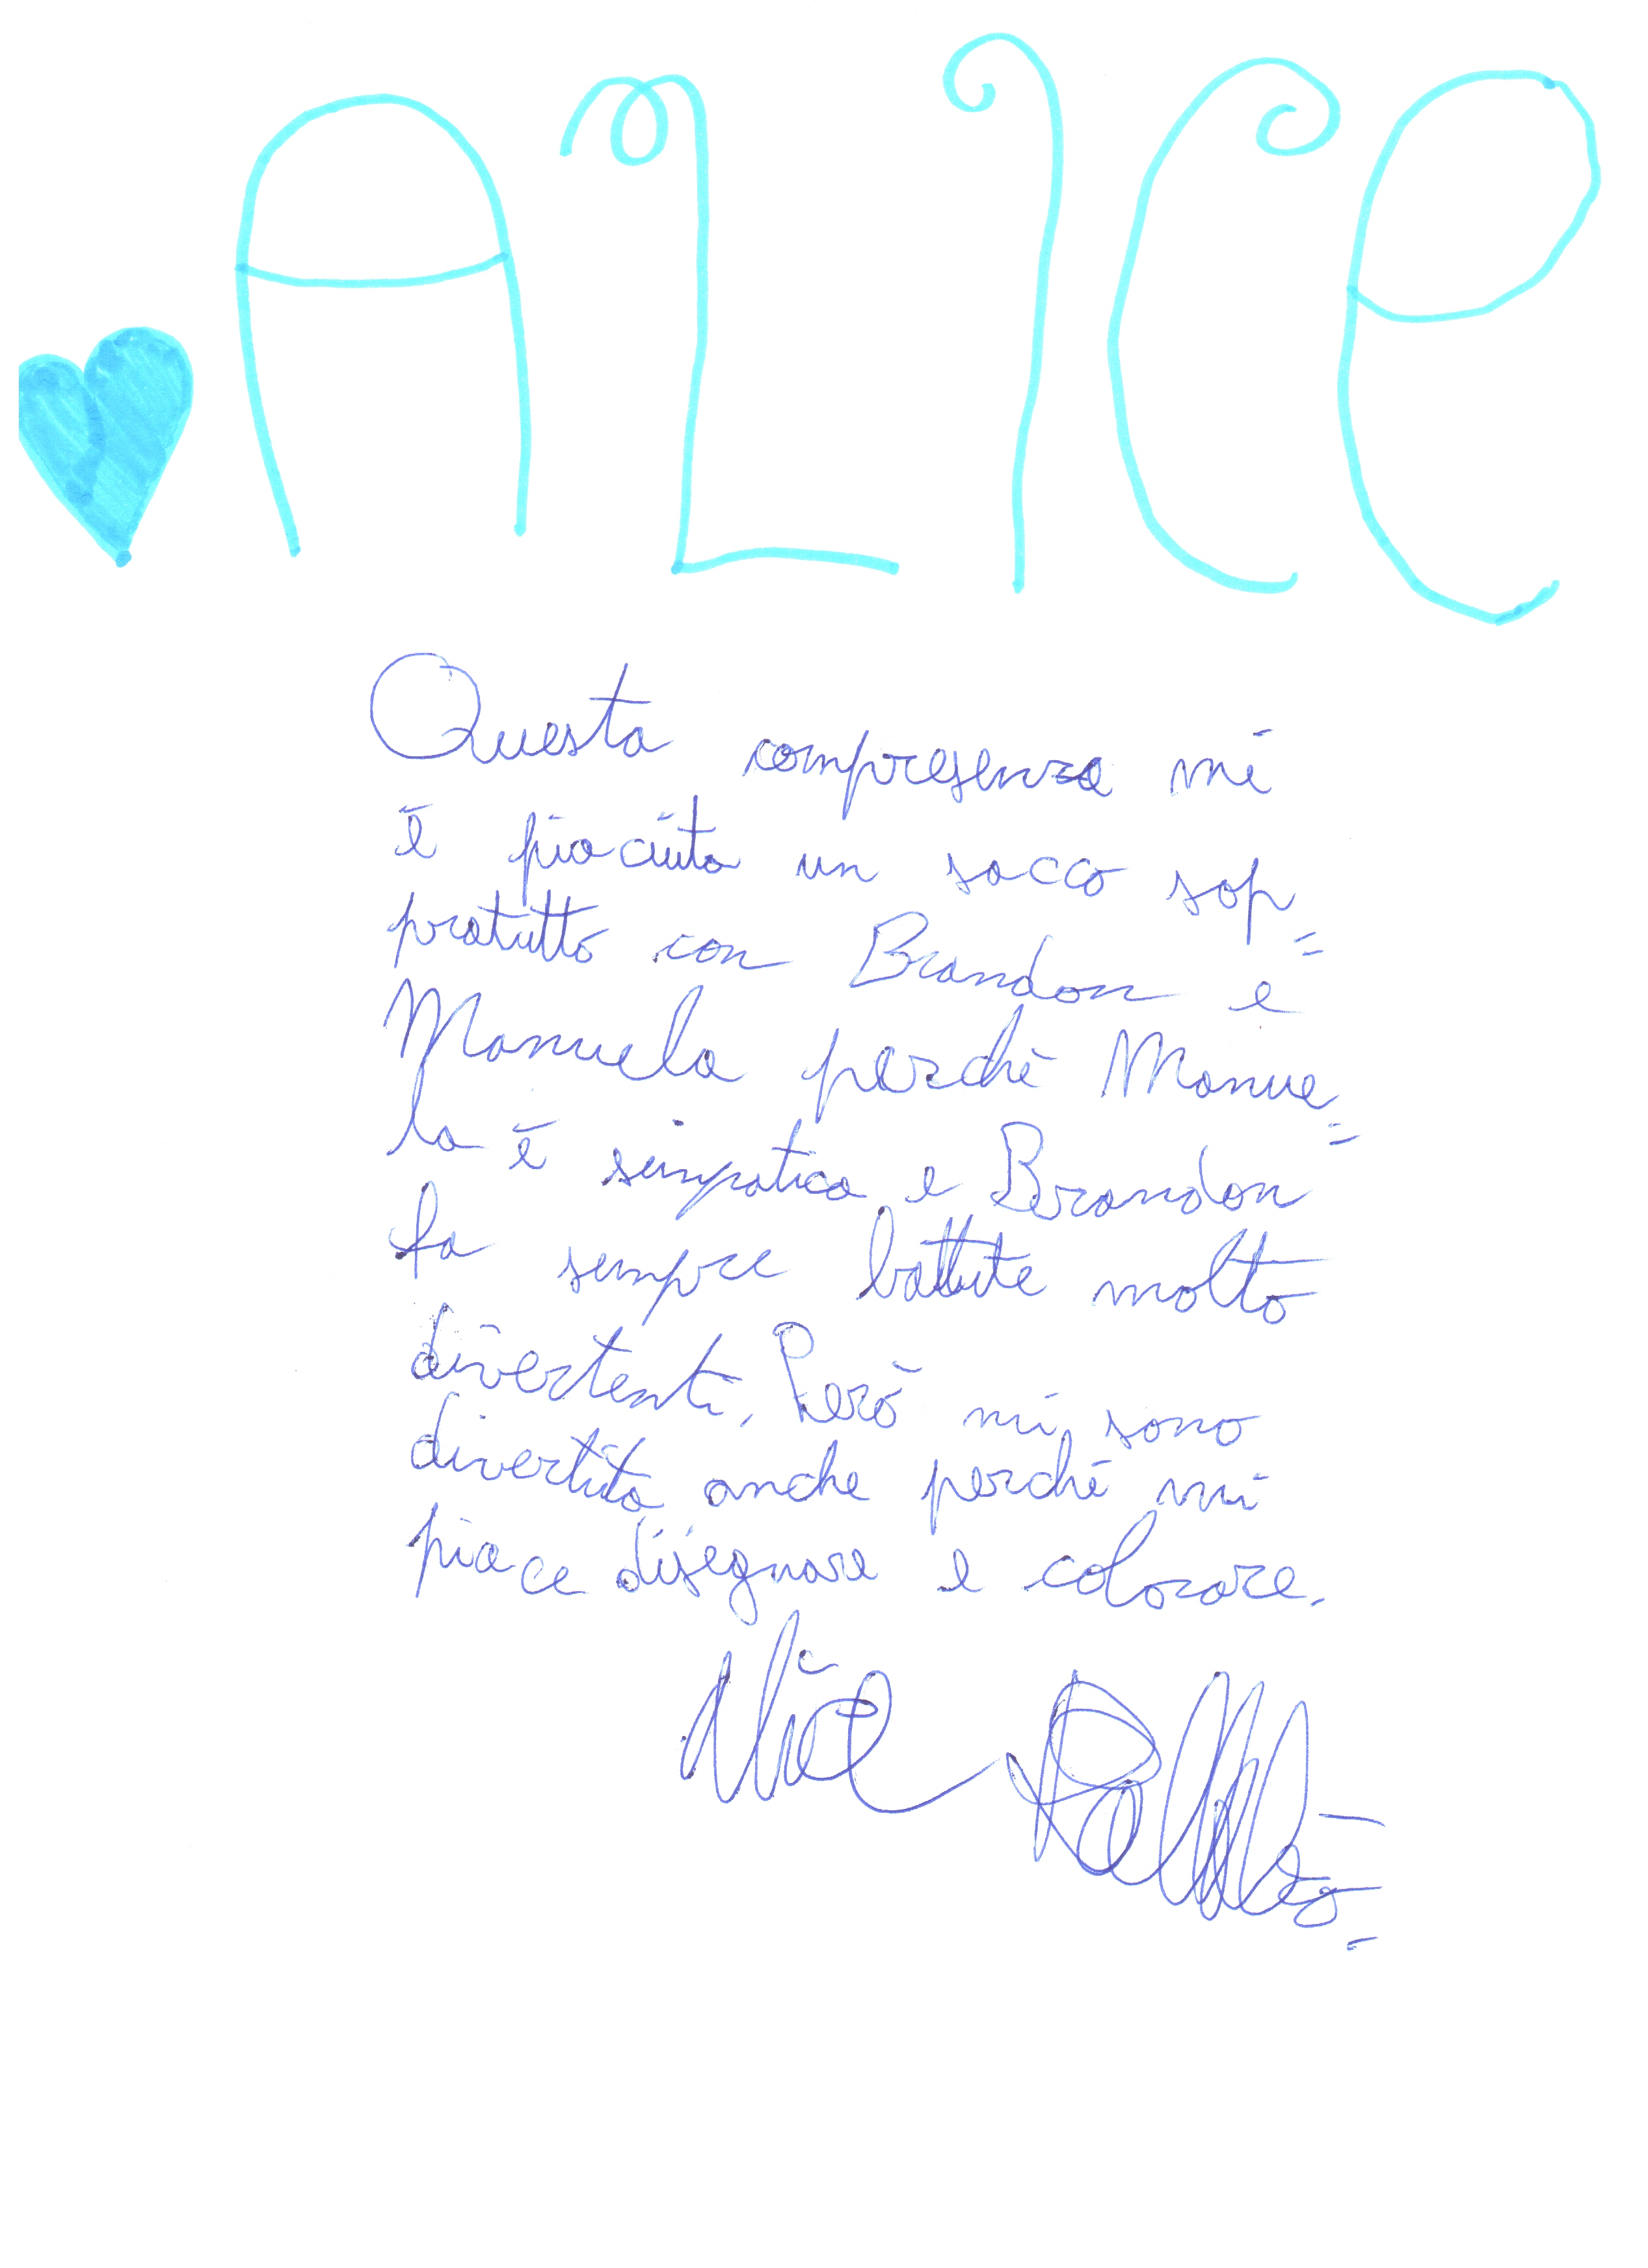 ALICE
Questa compresenza mi
è piaciuta un sacco sop=
pratutto con Brandon e
Manuela perchè Manue=
la è simpatica e Brandon
fa sempre battute molto
divertenti. Però mi sono
divertita anche perchè mi
piace disegnare e colorare.
Alice